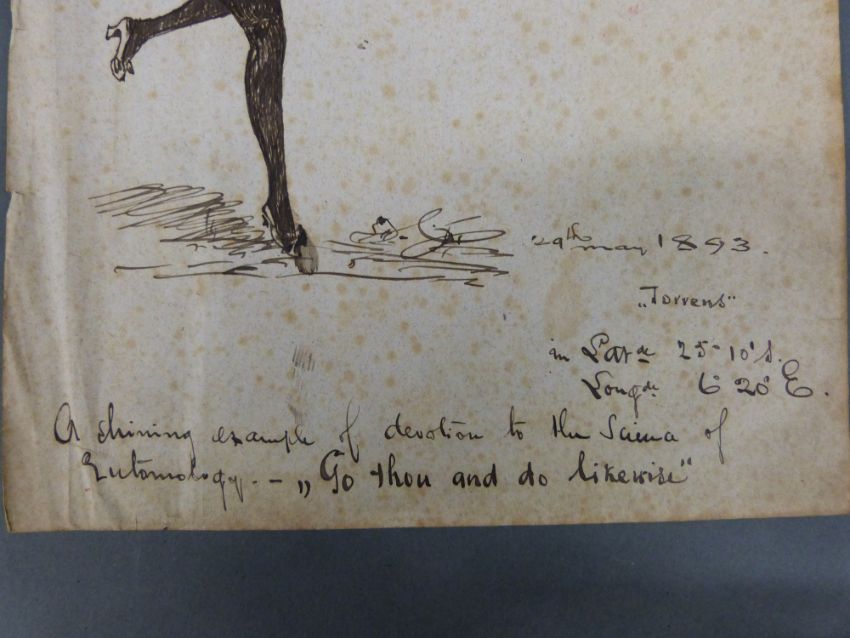 29th may 1893.
„Torrens"
in Latde 25° 10' S.
Longde 6° 20' E.
A shining example of devotion to the Science of
Entomology. - „Go thou and do likewise"